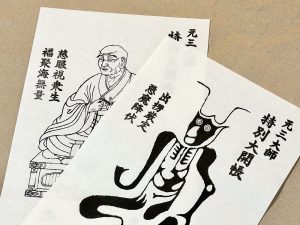 元三
慈眼視衆生
福聚海無量
元三大師
特別大開帳
悪魔降伏